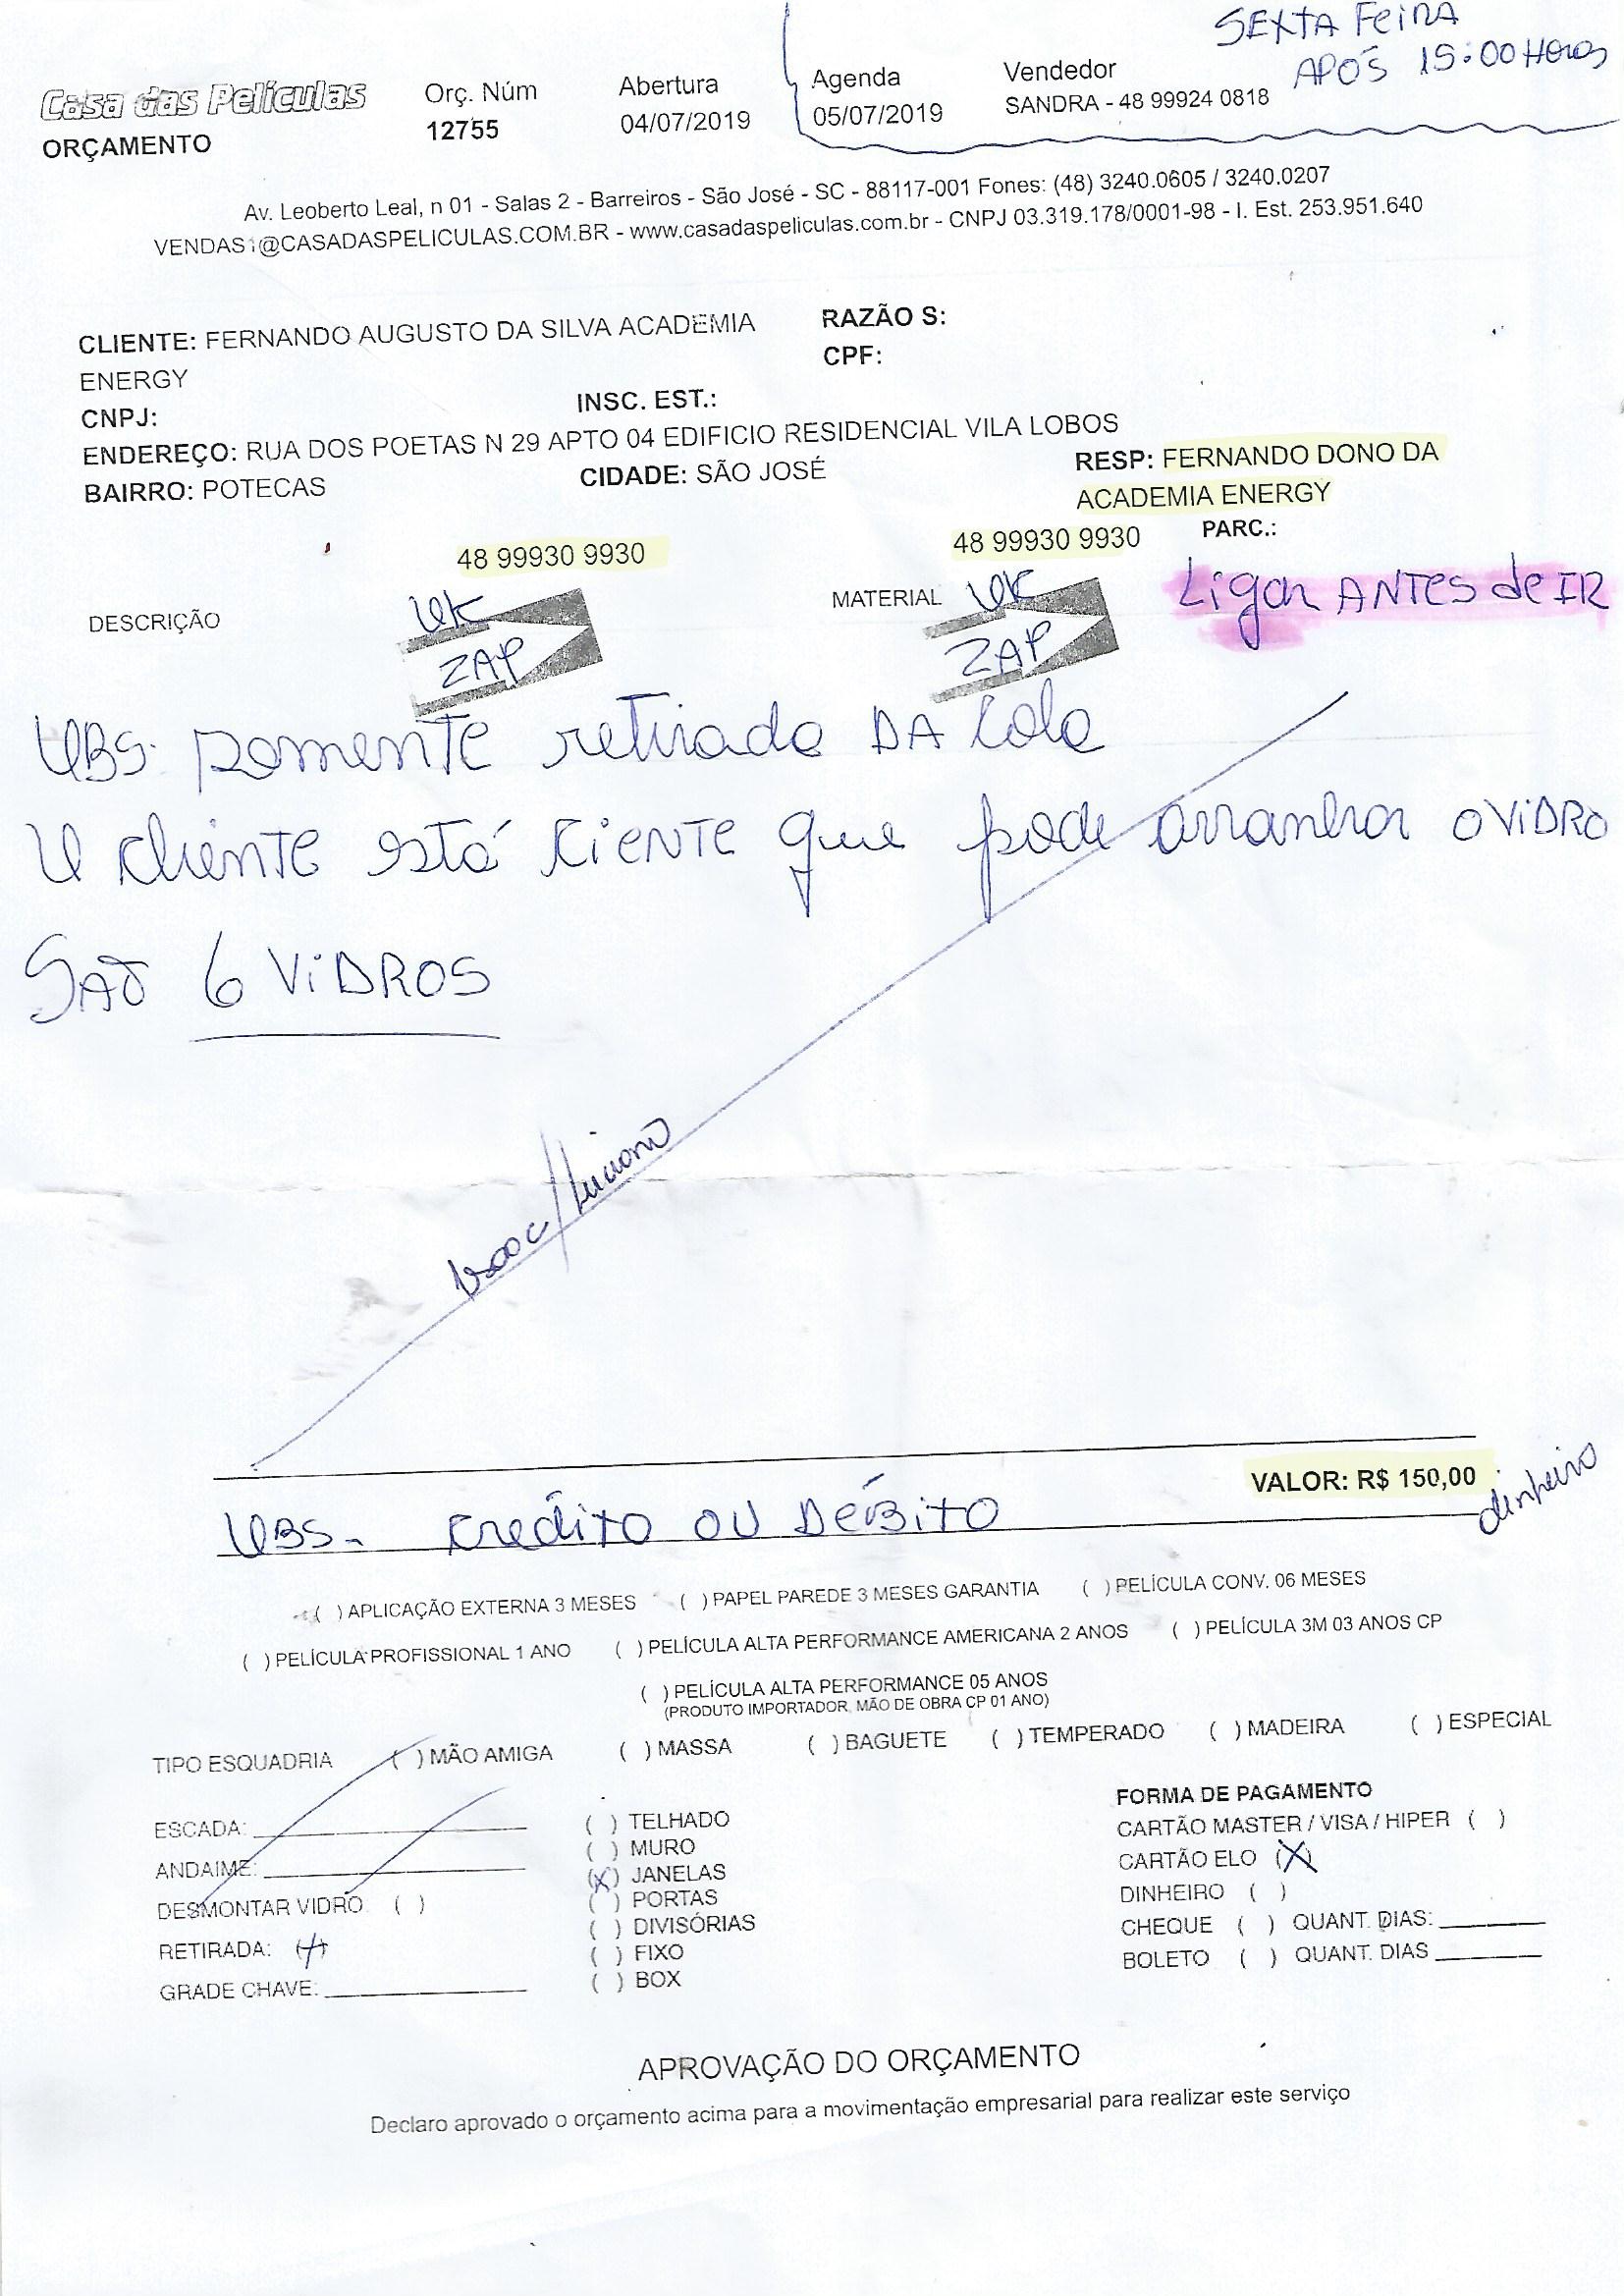 SEXTA FEIRA
APÓS 15:00 Horas
Casa das Películas
ORÇAMENTO
Orç. Núm
12755
Abertura
04/07/2019
Agenda
05/07/2019
Vendedor
SANDRA - 48 99924 0818
Av. Leoberto Leal, n 01 - Salas 2 - Barreiros - São José - SC - 88117-001 Fones: (48) 3240.0605 / 3240.0207
VENDAS1@CASADASPELICULAS.COM.BR - www.casadaspeliculas.com.br - CNPJ 03.319.178/0001-98 - I. Est. 253.951.640
CLIENTE: FERNANDO AUGUSTO DA SILVA ACADEMIA
ENERGY
RAZÃO S:
CPF:
CNPJ:
INSC. EST.:
ENDEREÇO: RUA DOS POETAS N 29 APTO 04 EDIFICIO RESIDENCIAL VILA LOBOS
BAIRRO: POTECAS
CIDADE: SÃO JOSÉ
RESP: FERNANDO DONO DA
ACADEMIA ENERGY
48 99930 9930
48 99930 9930
PARC.:
DESCRIÇÃO
OK
ZAP
MATERIAL
OK
ZAP
Ligar ANTES de IR
OBS. somente retirada DA cola
O cliente está CIENTE que pode arranhar o VIDRO
SAO 6 VIDROS
Isaac/Luciano
VALOR: R$ 150,00
dinheiro
OBS- Crédito OU Débito
( ) APLICAÇÃO EXTERNA 3 MESES ( ) PAPEL PAREDE 3 MESES GARANTIA ( ) PELÍCULA CONV. 06 MESES
( ) PELÍCULA PROFISSIONAL 1 ANO ( ) PELÍCULA ALTA PERFORMANCE AMERICANA 2 ANOS ( ) PELÍCULA 3M 03 ANOS CP
( ) PELÍCULA ALTA PERFORMANCE 05 ANOS
(PRODUTO IMPORTADOR, MÃO DE OBRA CP 01 ANO)
TIPO ESQUADRIA ( ) MÃO AMIGA ( ) MASSA ( ) BAGUETE ( ) TEMPERADO ( ) MADEIRA ( ) ESPECIAL
ESCADA:
ANDAIME:
DESMONTAR VIDRO ( )
RETIRADA: (X)
GRADE CHAVE:
( ) TELHADO
( ) MURO
(X) JANELAS
( ) PORTAS
( ) DIVISÓRIAS
( ) FIXO
( ) BOX
FORMA DE PAGAMENTO
CARTÃO MASTER / VISA / HIPER ( )
CARTÃO ELO (X)
DINHEIRO ( )
CHEQUE ( ) QUANT. DIAS:
BOLETO ( ) QUANT. DIAS
APROVAÇÃO DO ORÇAMENTO
Declaro aprovado o orçamento acima para a movimentação empresarial para realizar este serviço